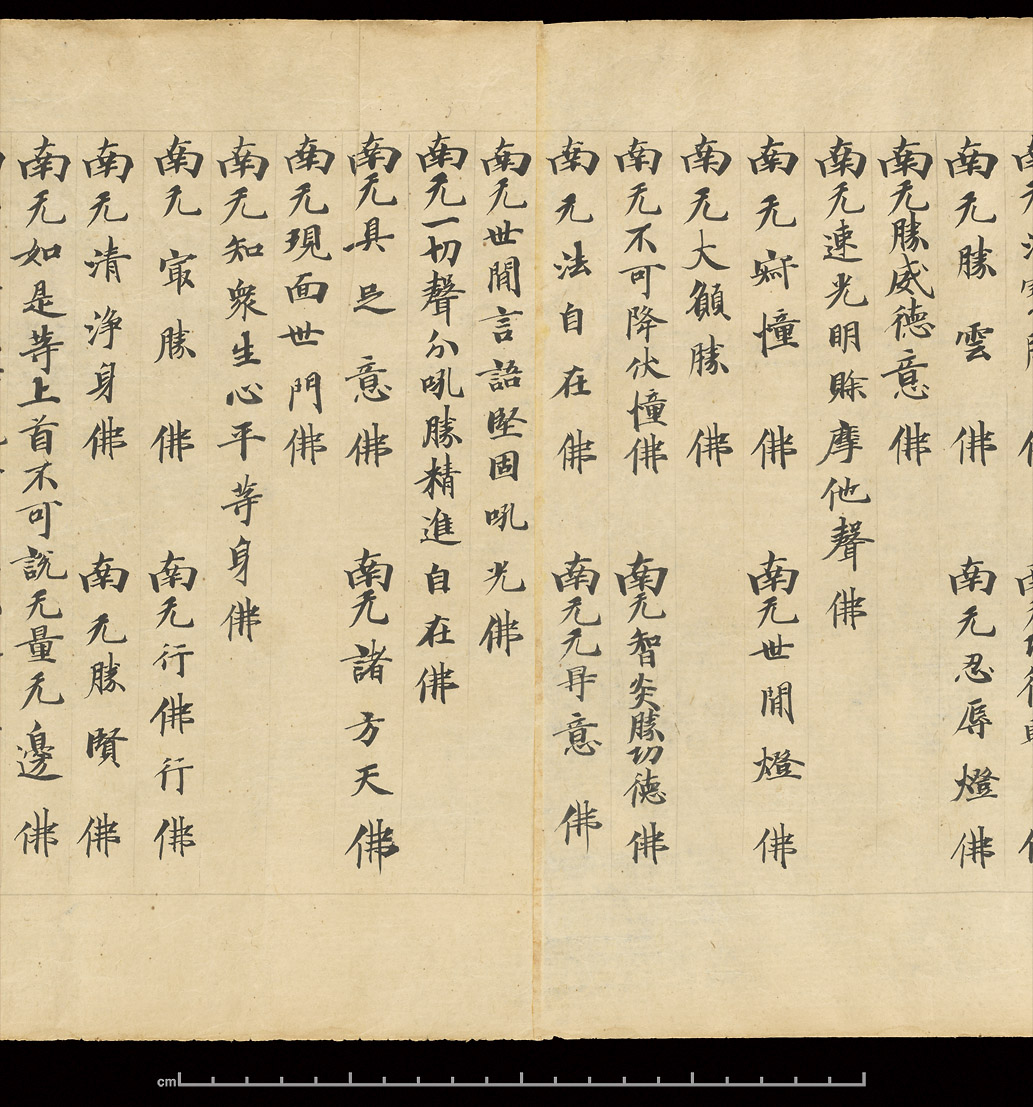 南无勝雲佛　南无忍辱燈佛
南无勝威德意佛
南无速光明賒摩他聲佛
南无寂幢佛　南无世間燈佛
南无大願勝佛
南无不可降伏幢佛　南无智炎勝功德佛
南无法自在佛　南无无㝵意佛
南无世間言語堅固吼光佛
南无一切聲分吼勝精進自在佛
南无具足意佛　南无諸方天佛
南无現面世門佛
南无知衆生心平等身佛
南无㝡勝佛　南无行佛行佛
南无清浄身佛　南无勝賢佛
南无如是等上首不可說无量无邊佛
cm